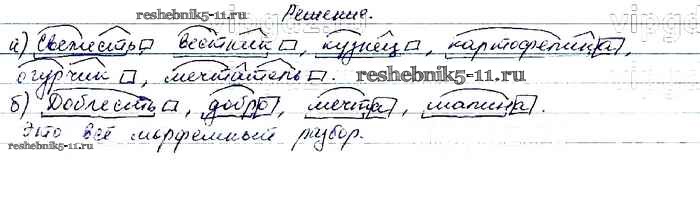 Решение.
reshebnik5-11.ru
а) Свежесть, вестник, кузнец, картофелина,
огурчик, мечтатель.
reshebnik5-11.ru
б) Доблесть, добро, мечта, малина.
Это всё морфемный разбор.
reshebnik5-11.ru